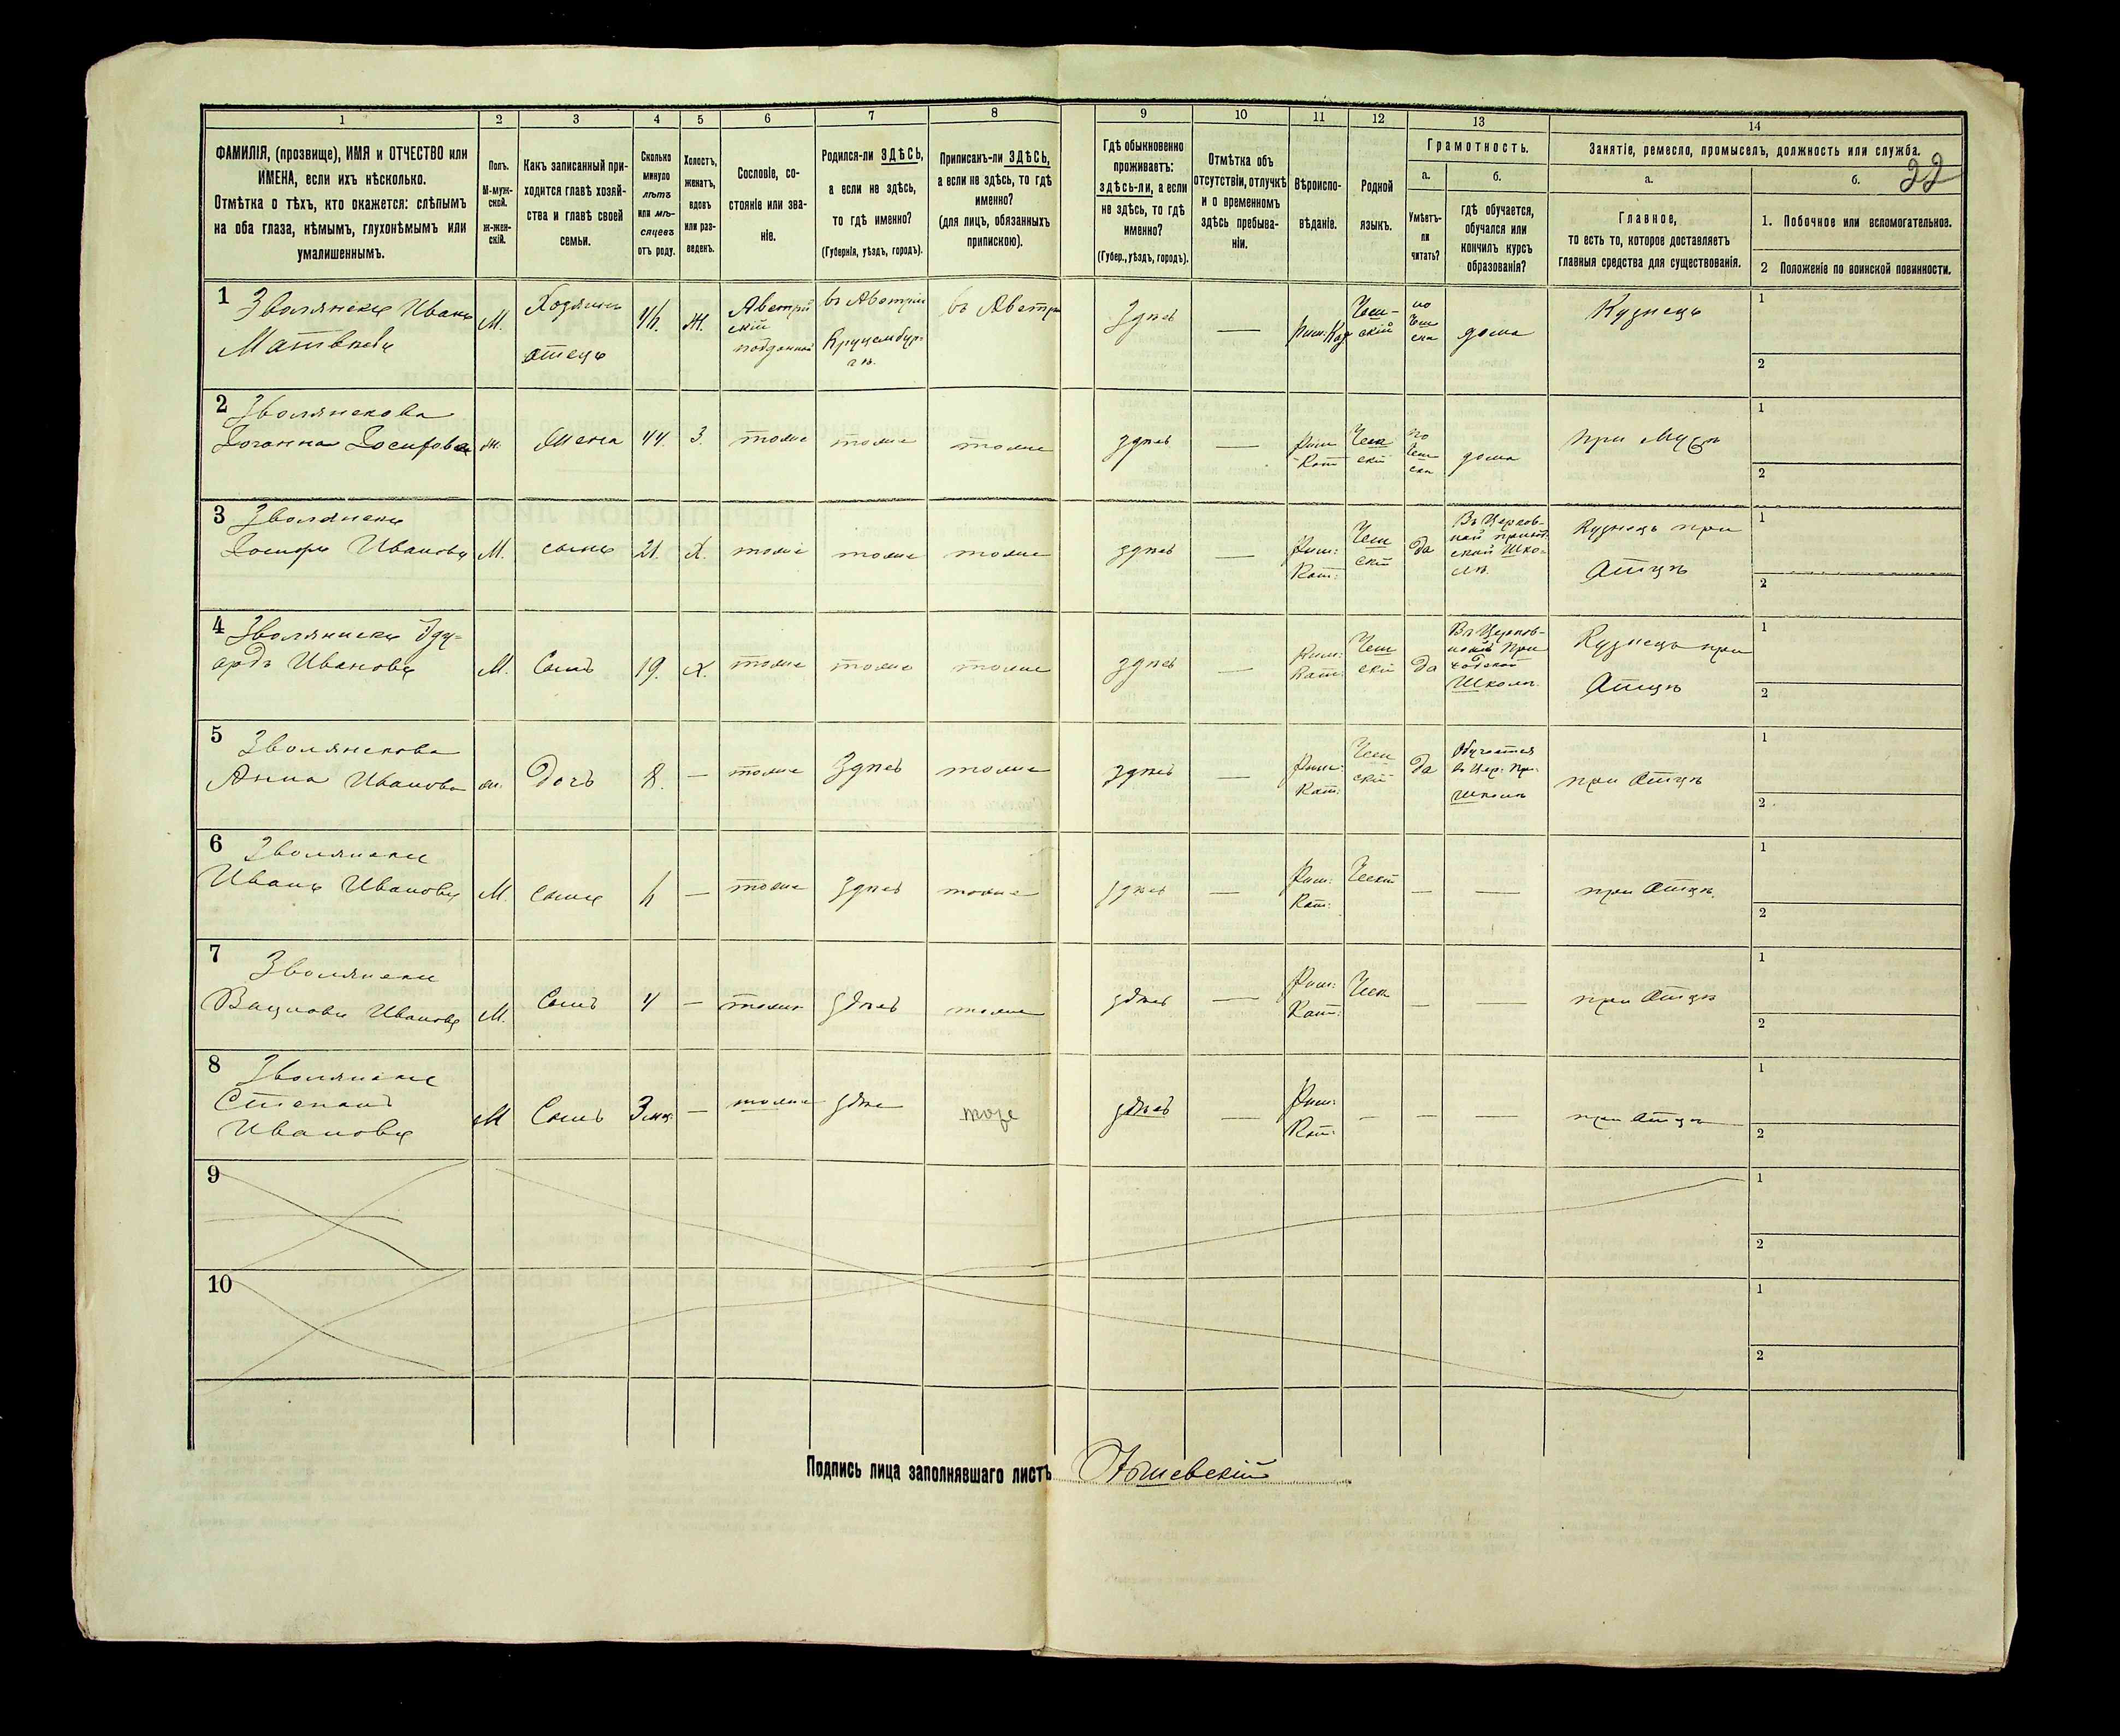 1 2 3 4 5 6 7 8 9 10 11 12 13 14
ФАМИЛІЯ, (прозвище), ИМЯ и ОТЧЕСТВО или
ИМЕНА, если ихъ нѣсколько.
Отмѣтка о тѣхъ, кто окажется: слѣпымъ
на оба глаза, нѣмымъ, глухонѣмымъ или
умалишеннымъ.
Полъ.
М-муж-
ской.
ж-жен-
скій.
Какъ записанный при-
ходится главѣ хозяй-
ства и главѣ своей
семьи.
Сколько
минуло
лѣтъ
или мѣ-
сяцевъ
отъ роду.
Холостъ,
женатъ,
вдовъ
или раз-
веденъ.
Сословіе, со-
стояніе или зва-
ніе.
Родился-ли ЗДѢСЬ,
а если не здѣсь,
то гдѣ именно?
(Губернія, уѣздъ, городъ).
Приписанъ-ли ЗДѢСЬ,
а если не здѣсь, то гдѣ
именно?
(для лицъ, обязанныхъ
припискою).
Гдѣ обыкновенно
проживаетъ:
здѣсь-ли, а если
не здѣсь, то гдѣ
именно?
(Губер., уѣздъ, городъ).
Отмѣтка объ
отсутствіи, отлучкѣ
и о временномъ
здѣсь пребыва-
ніи.
Вѣроиспо-
вѣданіе.
Родной
языкъ.
Грамотность.
а.
Умѣетъ-
ли
читать?
б.
гдѣ обучается,
обучался или
кончилъ курсъ
образованія?
Занятіе, ремесло, промыселъ, должность или служба.
22
а.
Главное,
то есть то, которое доставляетъ
главныя средства для существованія.
б.
1. Побочное или вспомогательное.
2 Положеніе по воинской повинности.
1
Иванъ
М.
Хозяинъ
отецъ
Ж.
Австрій
скій
въ Австріи
въ Австр
Здѣсь
Чеш-
скій
по
дома
Кузнецъ
1
2
2
Зволянскова
ж.
Жена
44.
З.
тоже
тоже
тоже
здѣсь
Рим
Кат
по
дома
при мужѣ
1
2
3
Іосифъ Ивановъ
М.
сынъ
21.
Х.
тоже
тоже
тоже
здѣсь
Рим:
Кат:
Чеш
скій
да
Въ Церков-
ной приход
ской Шко-
лѣ.
Кузнецъ при
Отцѣ
1
2
4
Зволянски Эду-
ардъ Ивановъ
М.
Сынъ
19.
х.
тоже
тоже
тоже
здѣсь
Рим:
Кат:
Чеш
скій
да
Въ Церков-
ной При
ходской
Школѣ.
Кузнецъ при
Отцѣ
1
2
5
Зволянскова
Анна Иванова
ж.
Дочь
8.
тоже
Здѣсь
тоже
здѣсь
Рим:
Кат:
Чеш
скій
да
Обучается
въ Цер: Пр:
Школѣ
при Отцѣ
1
2
6
Зволянски
Иванъ Ивановъ
М.
сынъ
тоже
Здѣсь
тоже
здѣсь
Рим:
Кат:
Чешскій
при Отцѣ.
1
2
7
Зволянски
Вацлавъ Ивановъ
М.
Сынъ
4
тоже
здѣсь
тоже
здѣсь
Рим:
Кат:
Чеш
при Отцѣ
1
2
8
Зволянски
Степанъ
Ивановъ
М
Сынъ
3 мѣс
тоже
здѣ
тоже
здѣсь
Рим:
Кат:
при Отцѣ
1
2
9
1
2
10
1
2
Подпись лица заполнявшаго листъ